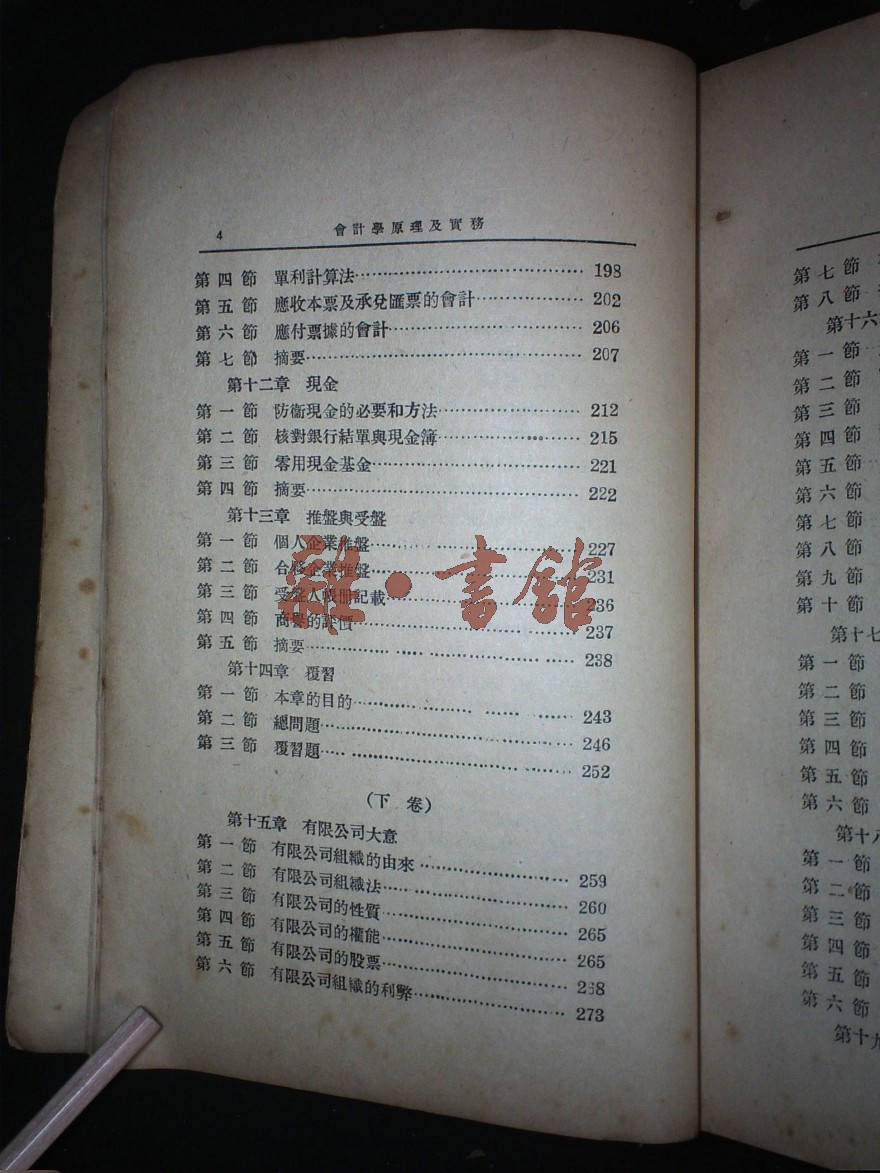 4 會計學原理及實務
第四節 單利計算法 198
第五節 應收本票及承兌匯票的會計 202
第六節 應付票據的會計 206
第七節 摘要 207
第十二章 現金
第一節 防衞現金的必要和方法 212
第二節 核對銀行結單與現金簿 215
第三節 零用現金基金 221
第四節 摘要 222
第十三章 推盤與受盤
第一節 個人企業推盤 227
第二節 合夥企業推盤 231
第三節 受盤人帳册記載 236
第四節 商譽的評價 237
第五節 摘要 238
第十四章 覆習
第一節 本章的目的 243
第二節 總問題 246
第三節 覆習題 252
(下卷)
第十五章 有限公司大意
第一節 有限公司組織的由來 259
第二節 有限公司組織法 260
第三節 有限公司的性質 265
第四節 有限公司的權能 265
第五節 有限公司的股票 268
第六節 有限公司組織的利弊 273
雜·書館
第七節
第八節
第十六
第一節
第二節
第三節
第四節
第五節
第六節
第七節
第八節
第九節
第十節
第十七
第一節
第二節
第三節
第四節
第五節
第六節
第十八
第一節
第二節
第三節
第四節
第五節
第六節
第十九